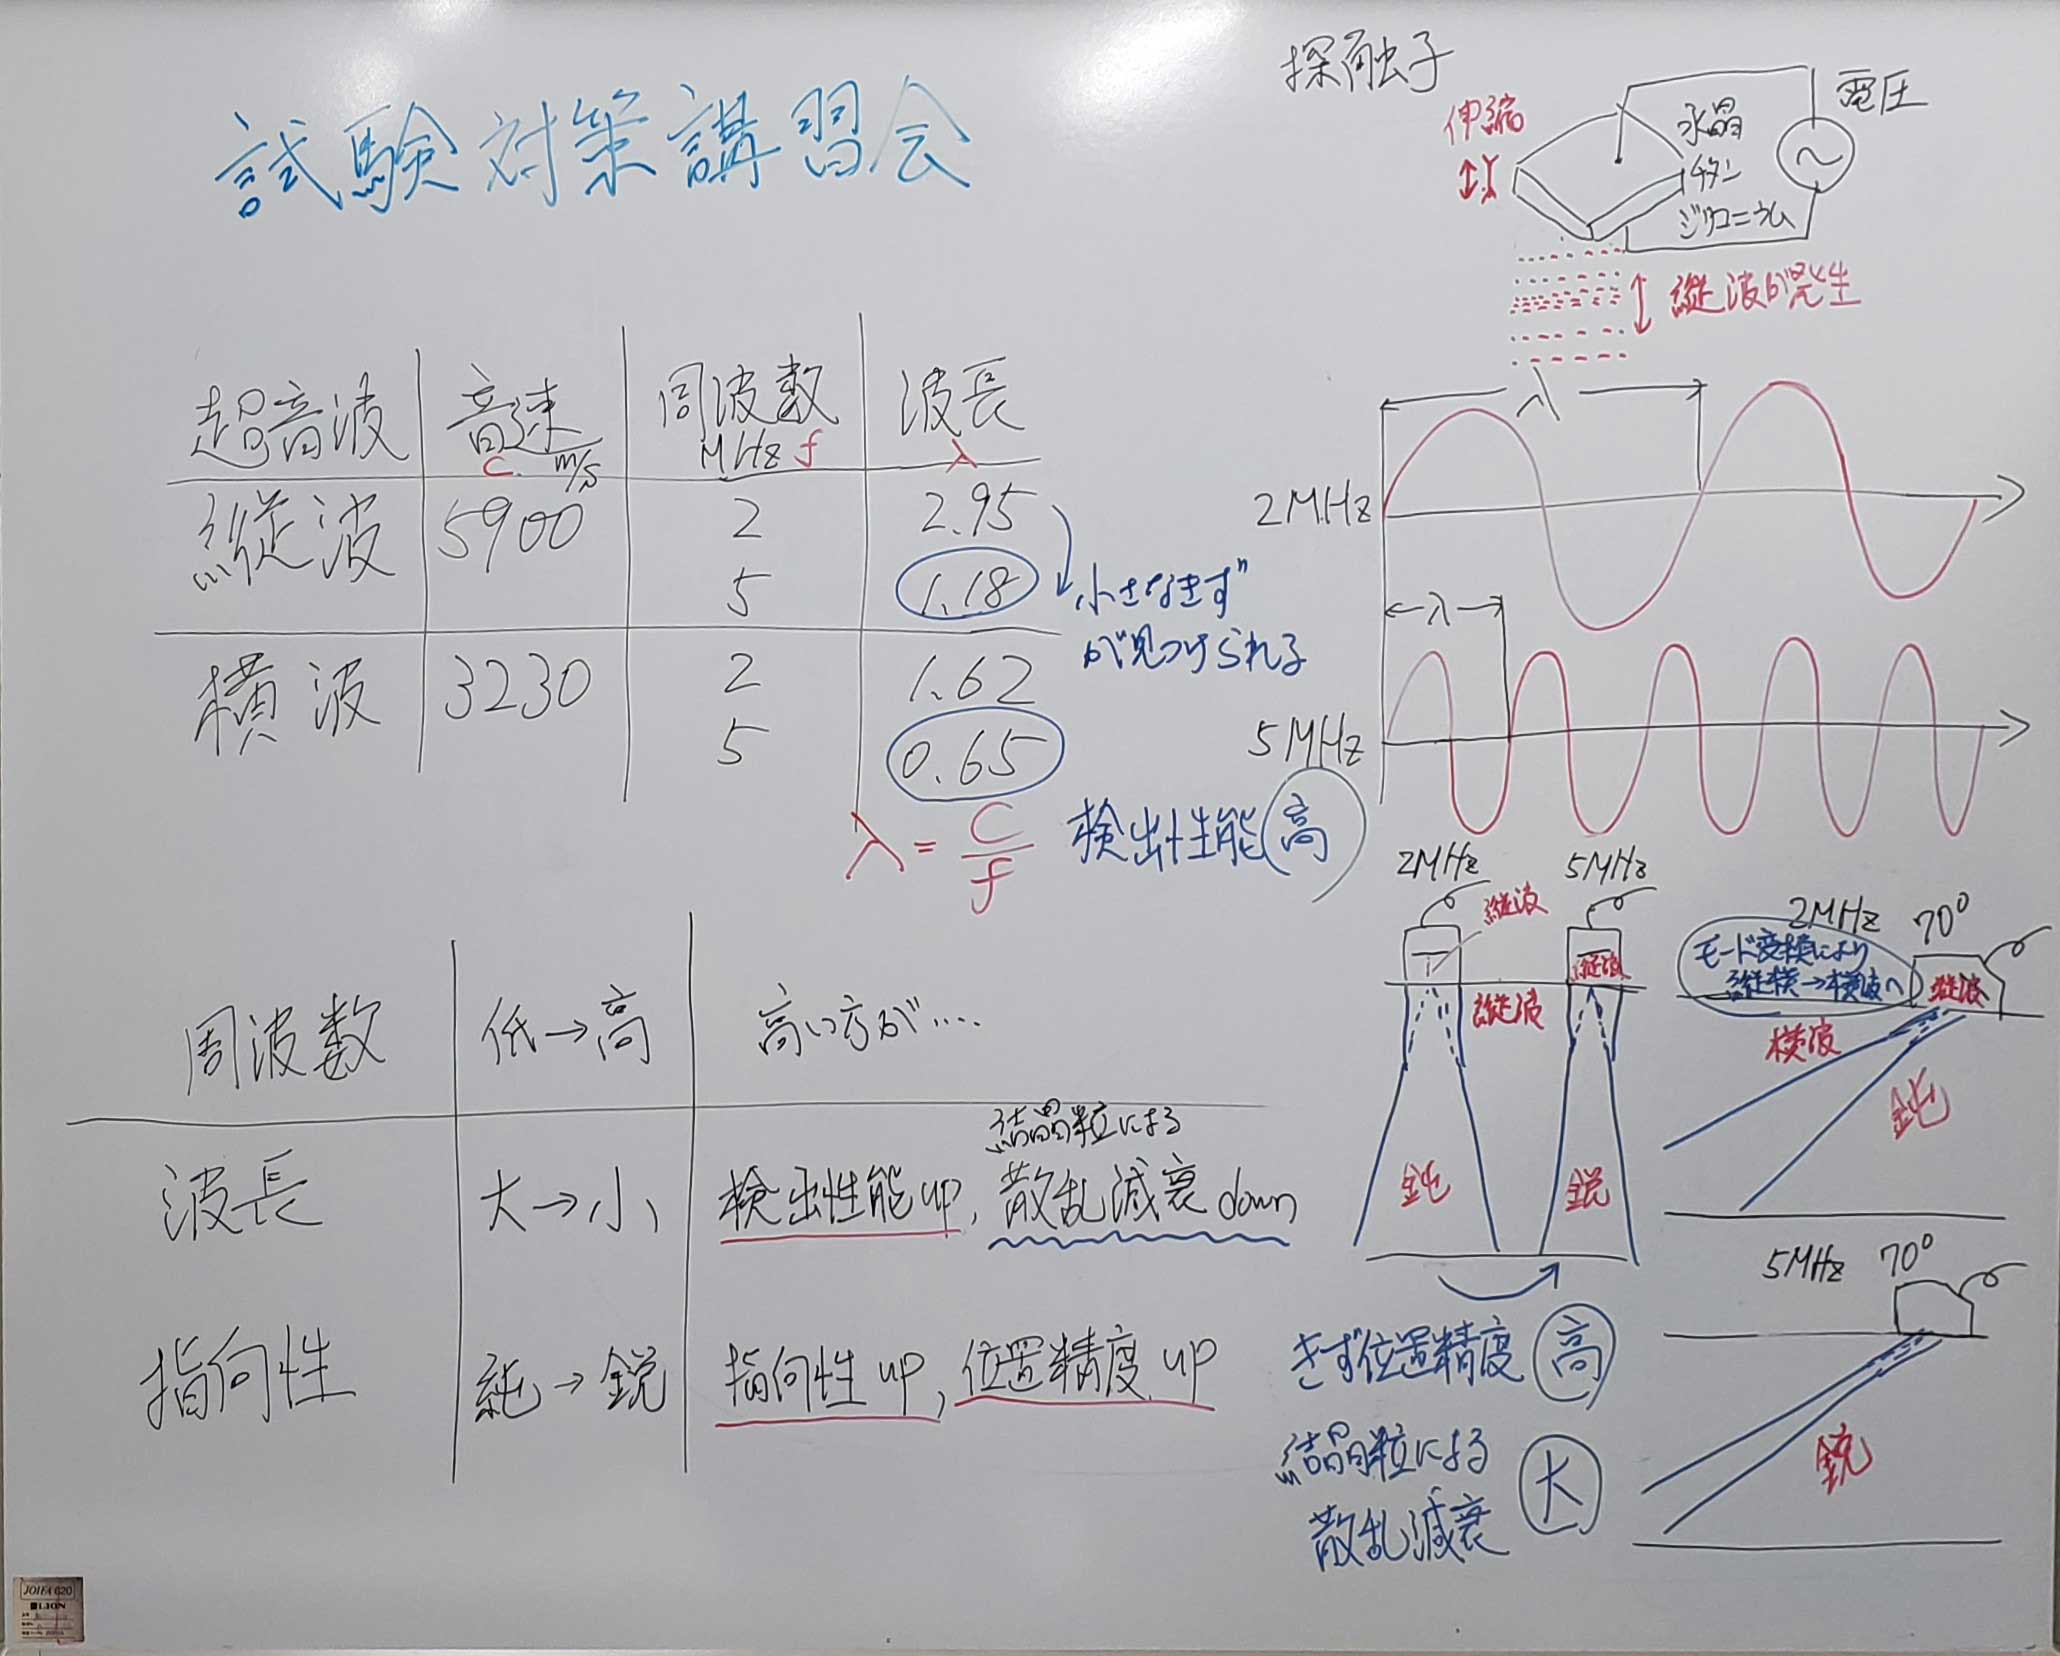 試験対策講習会
超音波 音速 周波数 波長
C m/s MHz f λ
縦波 5900 2 2.95
5 1.18
小さなきず
が見つけられる
横波 3230 2 1.62
5 0.65
λ = C/f
検出性能 高
周波数 低→高 高い方が....
結晶粒による
波長 大→小 検出性能up, 散乱減衰down
指向性 鈍→鋭 指向性up, 位置精度up
探触子
伸縮
水晶
チタン
ジルコニウム
電圧
縦波が発生
λ
2MHz
λ
5MHz
2MHz 5MHz
縦波
縦波
縦波
鈍 鋭
2MHz 70°
モード変換により
縦横→横波へ
縦波
横波
鈍
5MHz 70°
鋭
きず位置精度 高
結晶粒による
散乱減衰 大
JOIFA 620
LION